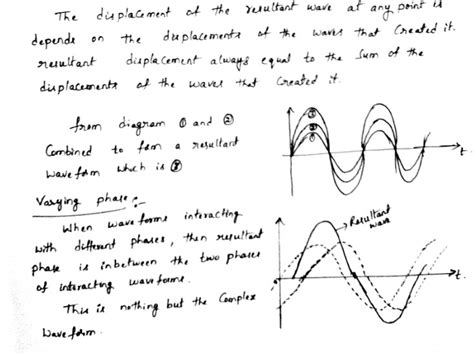 The displacement of the resultant wave at any point is
depends on the displacements of the waves that Created it.
resultant displacement always equal to the Sum of the
displacements of the waves that Created it.
from diagram ① and ②
Combined to form a resultant
waveform which is ③
③
②
①
t
Varying phase :-
When wave forms interacting
with different phases, then resultant
phase is inbetween the two phases
of interacting waveforms.
This is nothing but the Complex
Waveform.
Resultant
wave
t